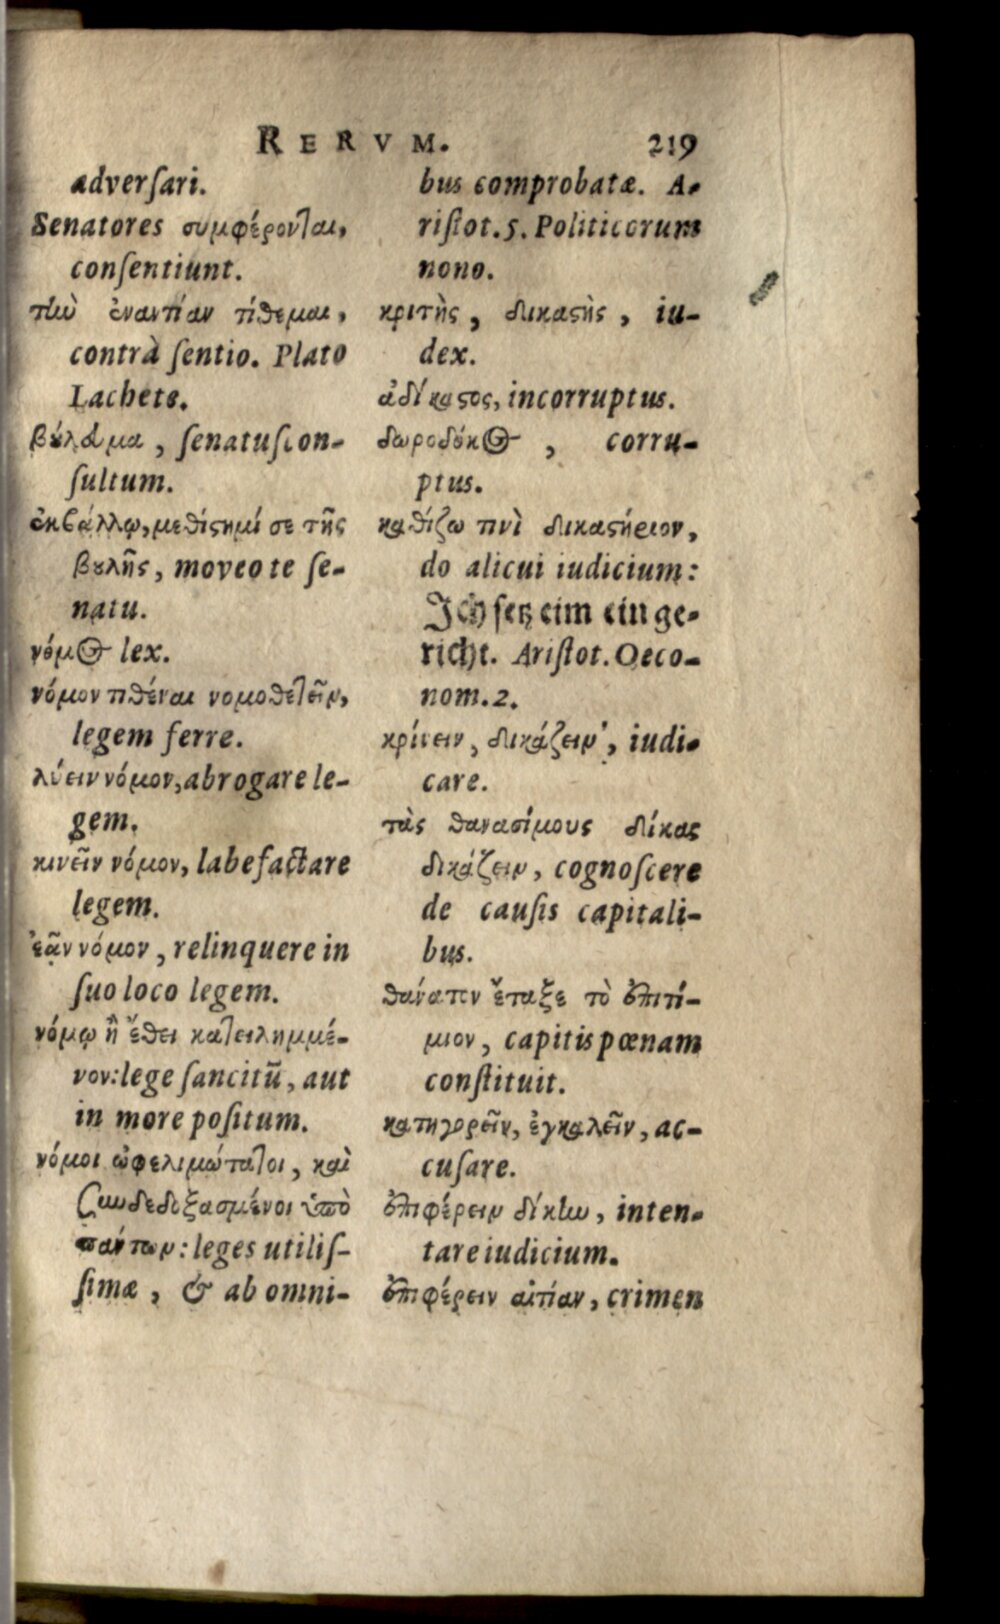 RERVM. 219
adversari.
Senatores συμφέρονται,
consentiunt.
τὴν ἐναντίαν τίθεμαι,
contrà sentio. Plato
Lachete.
βούλευμα, senatuscon-
sultum.
ἐκβάλλω, μεθίστημί σε τῆς
βουλῆς, moveo te se-
natu.
νόμος lex.
νόμον τιθέναι νομοθετεῖν,
legem ferre.
λύειν νόμον, abrogare le-
gem.
κινεῖν νόμον, labefactare
legem.
ἐᾶν νόμον, relinquere in
suo loco legem.
νόμῳ ἢ ἔθει κατειλημμέ-
νον: lege sancitū, aut
in more positum.
νόμοι ὠφελιμώτατοι, καὶ
συνδεδοξασμένοι ὑπὸ
πάντων: leges utilis-
simæ, & ab omni-
bus comprobatæ. A-
ristot. 5. Politicorum
nono.
κριτὴς, δικαστὴς, iu-
dex.
ἀδίκαστος, incorruptus.
δωροδόκος, corru-
ptus.
καθίζω τινὶ δικαστήριον,
do alicui iudicium:
Ich setz eim ein ge-
richt. Aristot. Oeco-
nom. 2.
κρίνειν, δικάζειν, iudi-
care.
τὰς θανασίμους δίκας
δικάζειν, cognoscere
de causis capitali-
bus.
θάνατον ἔταξε τὸ ἐπιτί-
μιον, capitis pœnam
constituit.
κατηγορεῖν, ἐγκαλεῖν, ac-
cusare.
ἐπιφέρειν δίκην, inten-
tare iudicium.
ἐπιφέρειν αἰτίαν, crimen